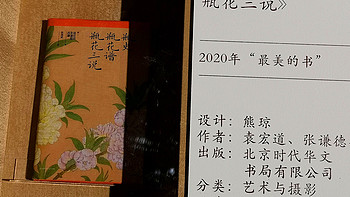 瓶史
瓶花谱
瓶花三说
瓶花三说》
2020年“最美的书”
设计：熊琼
作者：袁宏道、张谦德
出版：北京时代华文
书局有限公司
分类：艺术与摄影